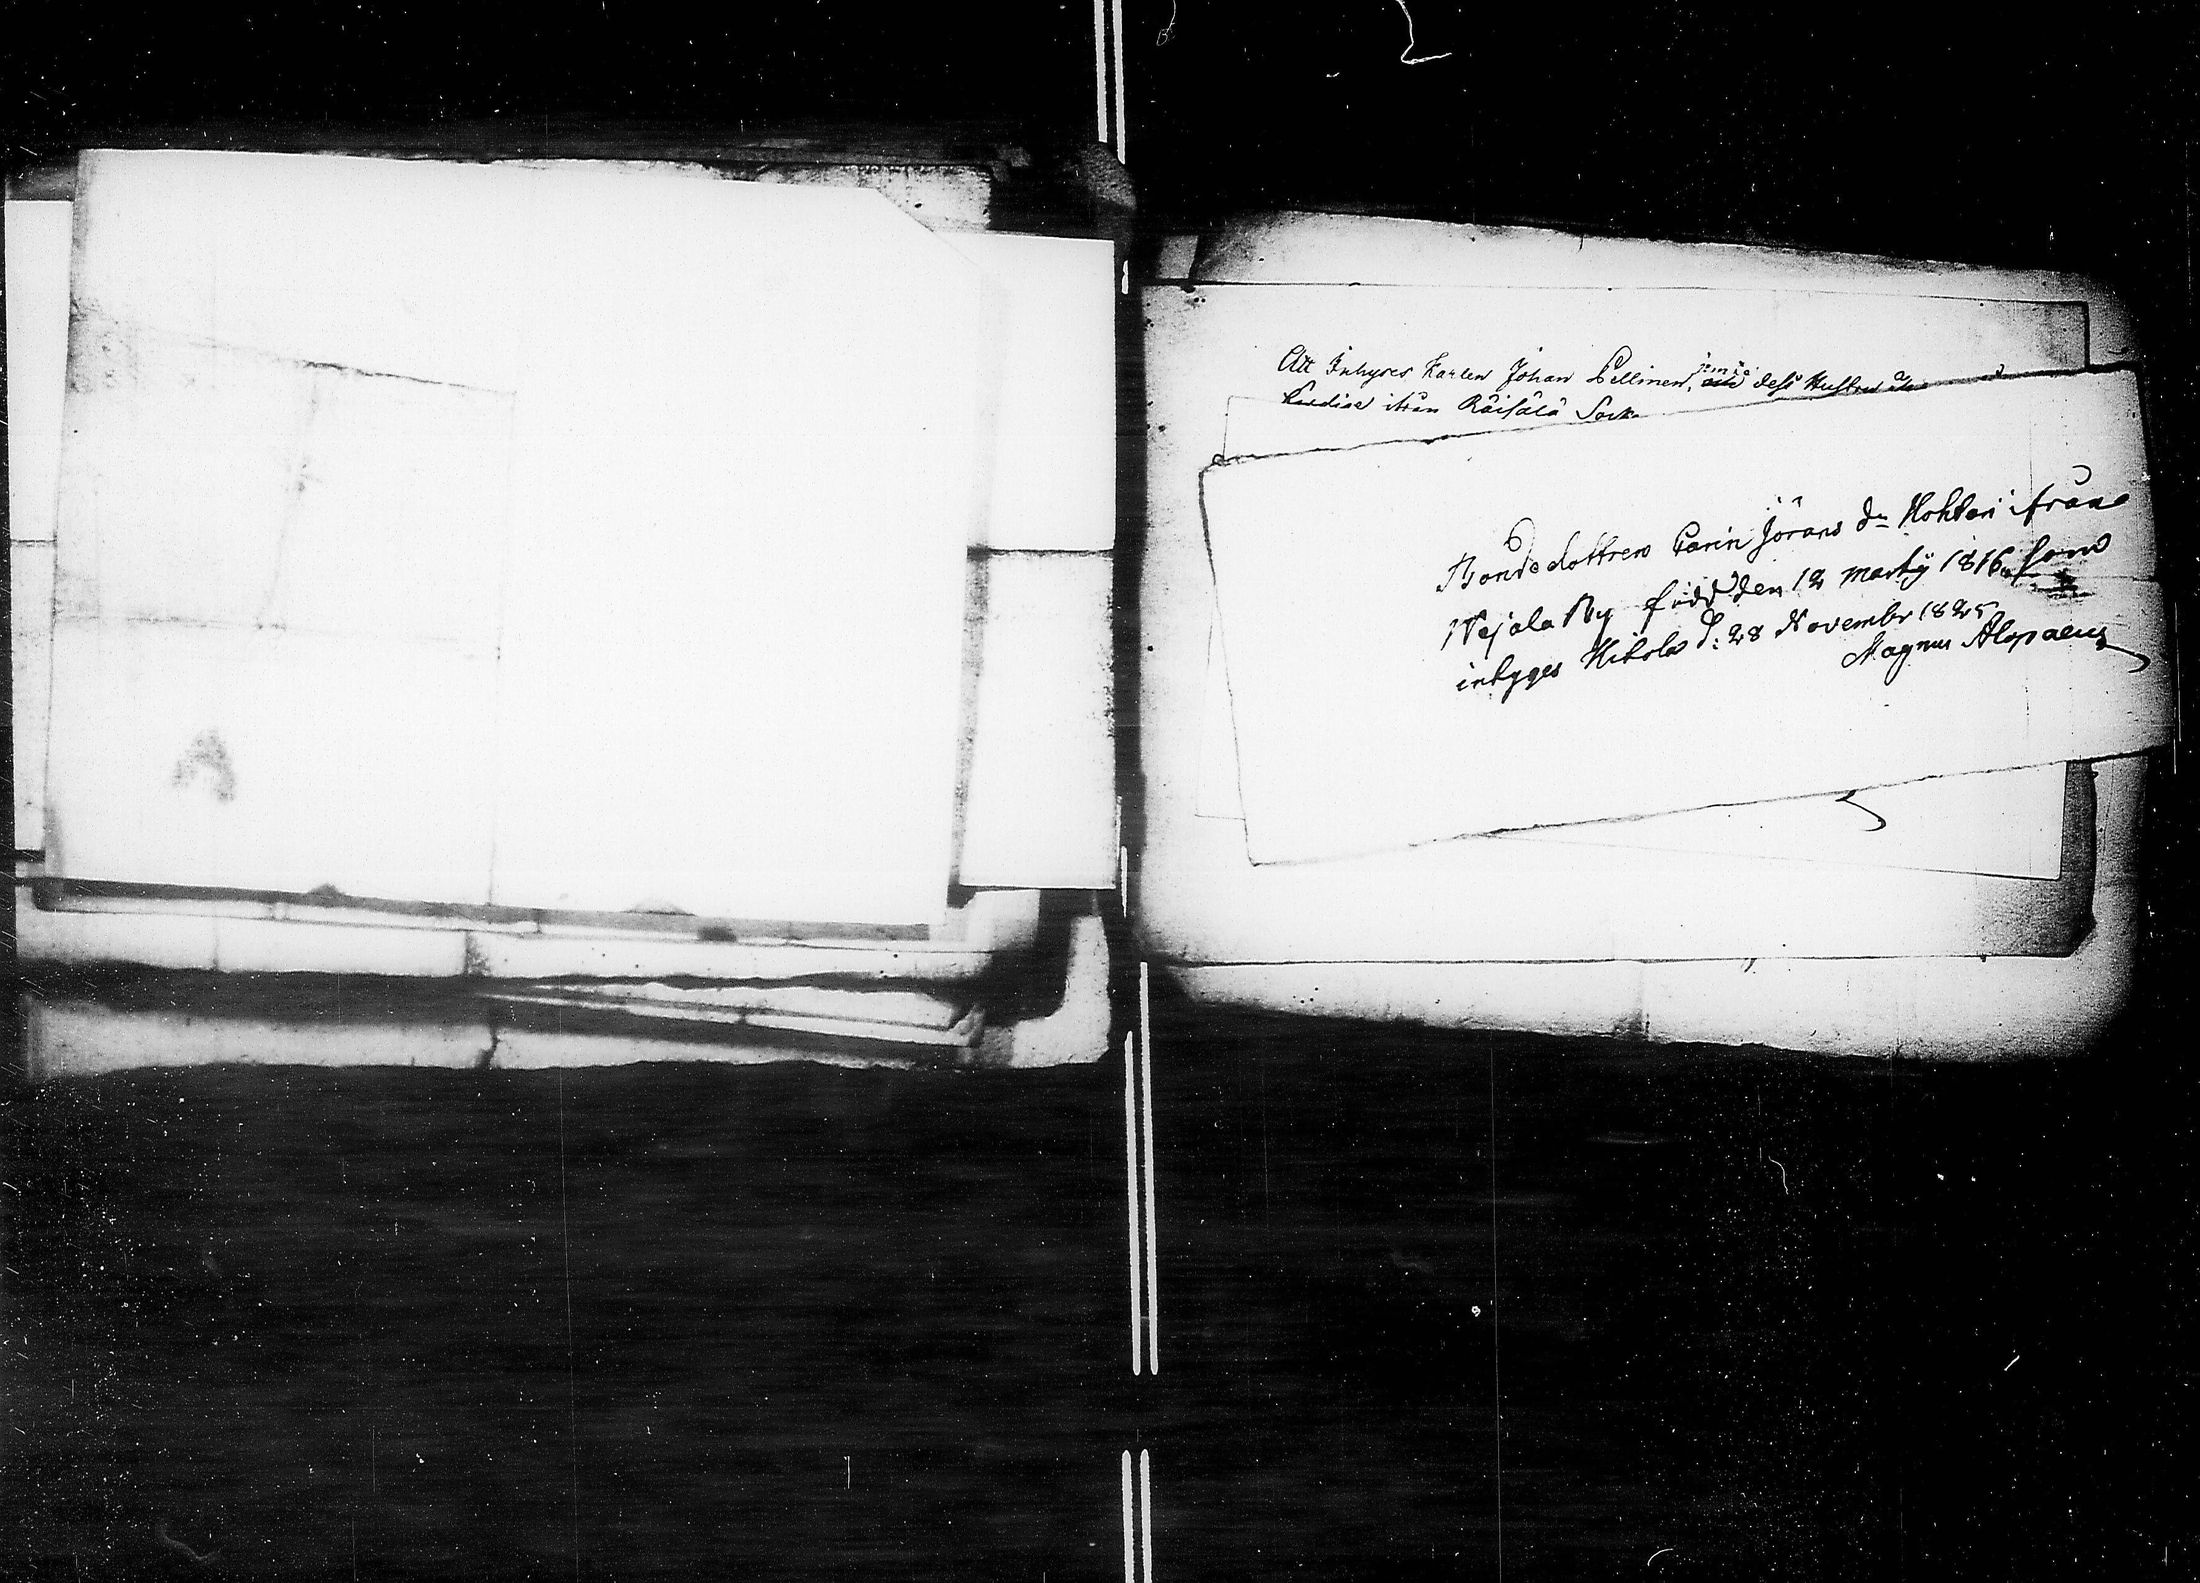 Att Inhyses Karlen Johan Pellinen, jemte dess Hustru
ifrån Räisälä Sock
Bondedottren Carin Jörans dr Kohtari ifrån
Wejala By född den 12 marty 1816 som
inhyges Hitola d: 28 November 1825
Magnus Alopaeus